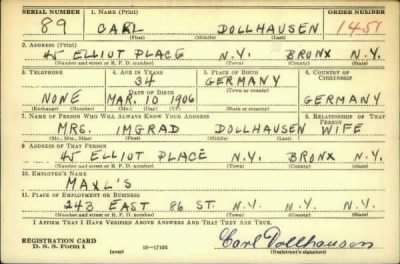 SERIAL NUMBER 1. NAME (Print) ORDER NUMBER
89 CARL DOLLHAUSEN 1451
(First) (Middle) (Last)
2. ADDRESS (Print)
45 ELLIOT PLACE N.Y. BRONX N.Y.
(Number and street or R. F. D. number) (Town) (County) (State)
3. TELEPHONE 4. AGE IN YEARS 5. PLACE OF BIRTH 6. COUNTRY OF CITIZENSHIP
34 GERMANY
DATE OF BIRTH (Town or county)
NONE MAR. 10 1906 GERMANY
(Exchange) (Number) (Mo.) (Day) (Yr.) (State or country)
7. NAME OF PERSON WHO WILL ALWAYS KNOW YOUR ADDRESS 8. RELATIONSHIP OF THAT PERSON
MRS. IMGRAD DOLLHAUSEN WIFE
(Mr., Mrs., Miss) (First) (Middle) (Last)
9. ADDRESS OF THAT PERSON
45 ELLIOT PLACE N.Y. BRONX N.Y.
(Number and street or R. F. D. number) (Town) (County) (State)
10. EMPLOYER'S NAME
MAXL'S
11. PLACE OF EMPLOYMENT OR BUSINESS
243 EAST 86 ST. N.Y. N.Y. N.Y.
(Number and street or R. F. D. number) (Town) (County) (State)
I AFFIRM THAT I HAVE VERIFIED ABOVE ANSWERS AND THAT THEY ARE TRUE.
REGISTRATION CARD
D. S. S. Form 1 (over) 16—17105
Carl Dollhausen
(Registrant's signature)